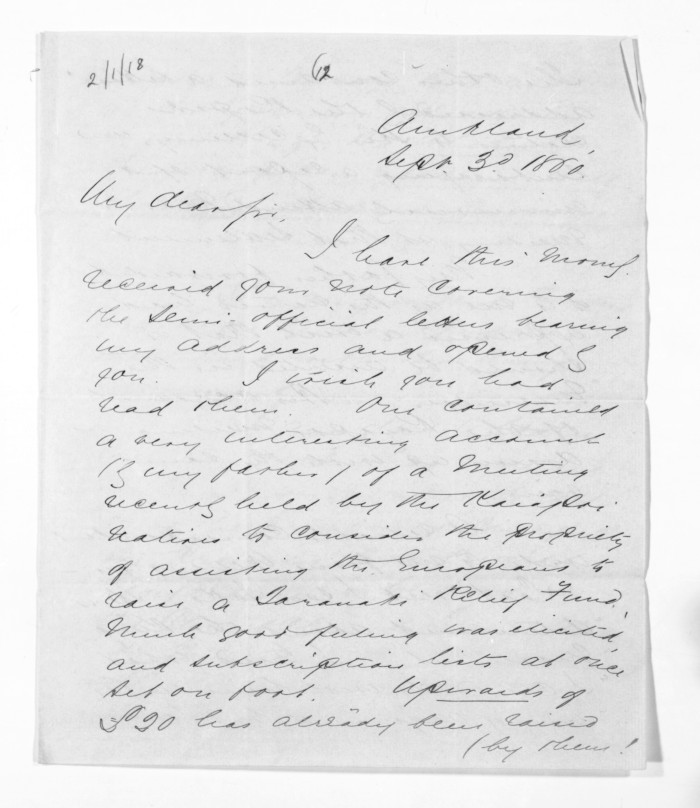 2/1/18
12
Auckland,
Sept. 3d 1860.
My dear Sir,
I have this morng.
received your note covering
the semi official letters bearing
my address and opened by
you. I wish you had
read them. One contained
a very interesting account
(by my father) of a Meeting
recently held by the Kaiapoi
natives to consider the propriety
of assisting the Europeans to
raise a Taranaki Relief Fund.
Much good feeling was elicited,
and subscription lists at once
set on foot. Upwards of
£20 has already been raised
(by them!